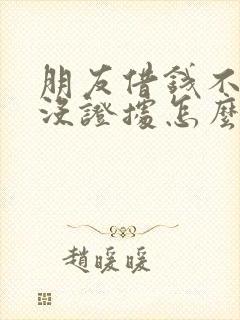 朋友借錢不
沒證據怎麼
趙暖暖